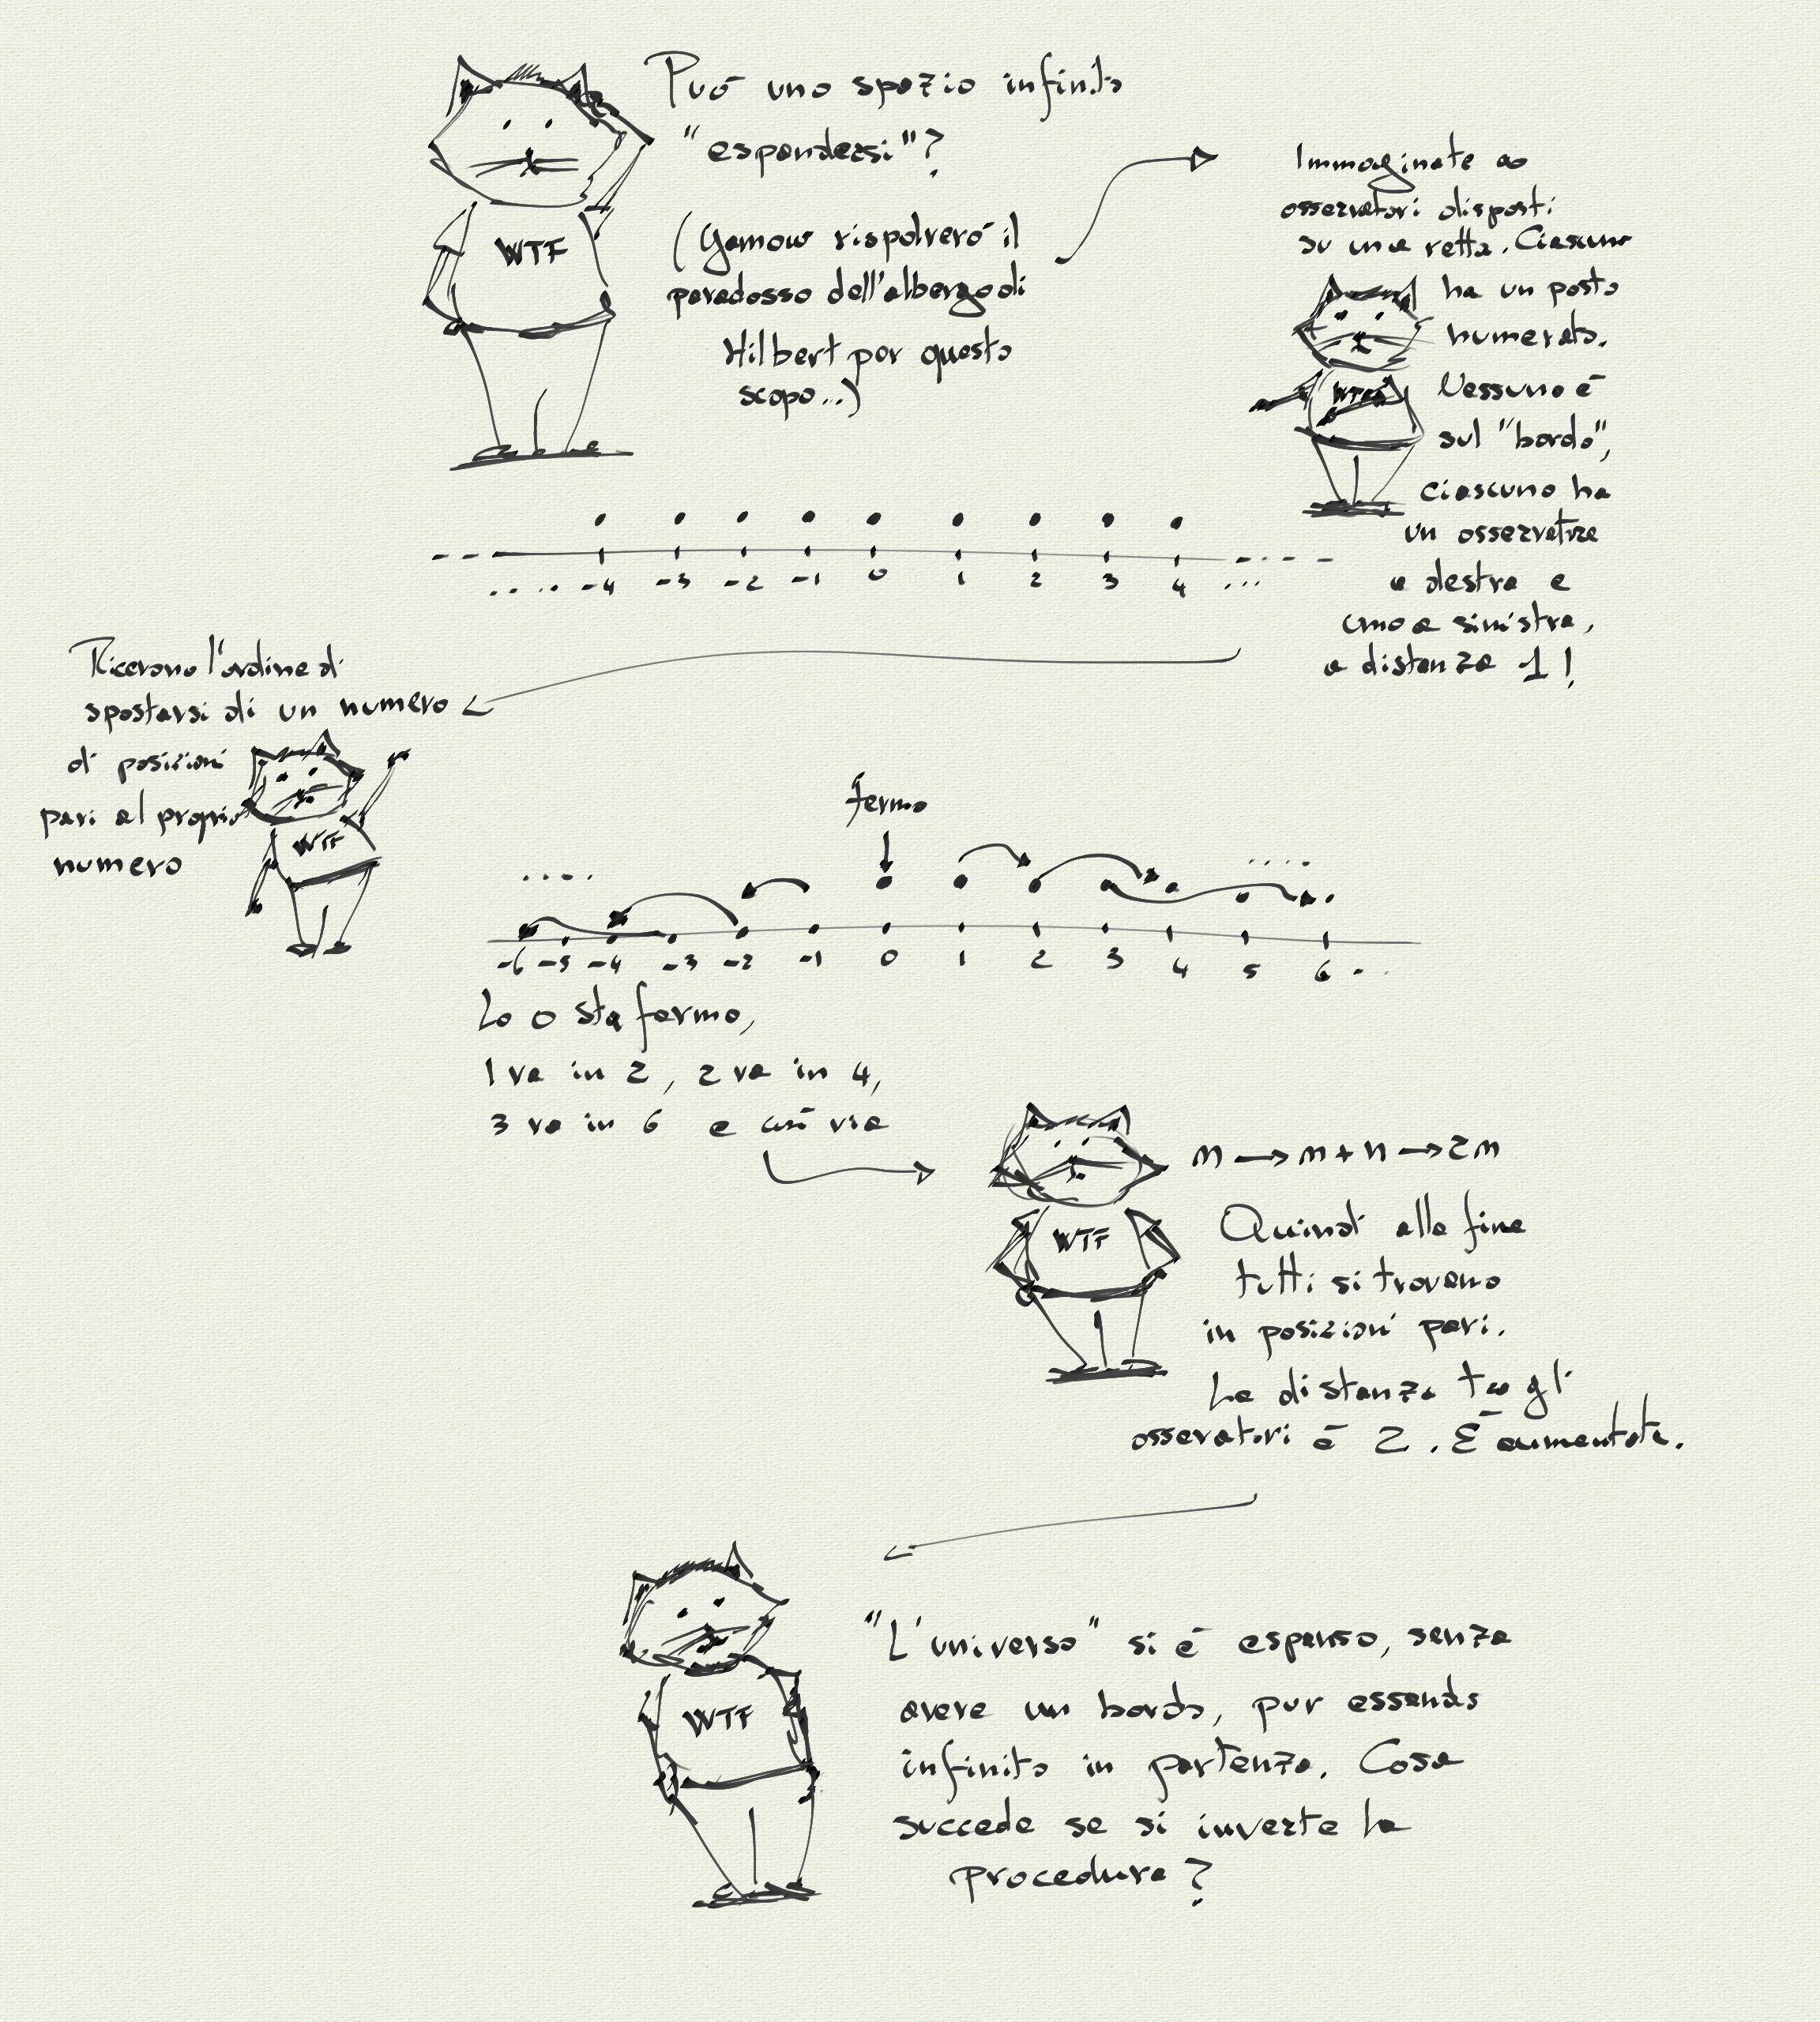 Può uno spazio infinito
"espandersi"?
(Gamow rispolverò il
paradosso dell'albergo di
Hilbert per questo
scopo..)
WTF
Immaginate ∞
osservatori disposti
su una retta. Ciascuno
ha un posto
numerato.
WTF
Nessuno è
sul "bordo",
ciascuno ha
un osservatore
a destra e
uno a sinistra,
a distanza 1!
.... -4 -3 -2 -1 0 1 2 3 4 ...
Ricevono l'ordine di
spostarsi di un numero
di posizioni
pari al proprio
numero
WTF
fermo
.... ....
-6 -5 -4 -3 -2 -1 0 1 2 3 4 5 6 ..
Lo 0 sta fermo,
1 va in 2, 2 va in 4,
3 va in 6 e così via
n → n + n → 2n
WTF
Quindi alla fine
tutti si trovano
in posizioni pari.
La distanza tra gli
osservatori è 2. È aumentata.
WTF
"L'universo" si è espanso, senza
avere un bordo, pur essendo
infinito in partenza. Cosa
succede se si inverte la
procedura?